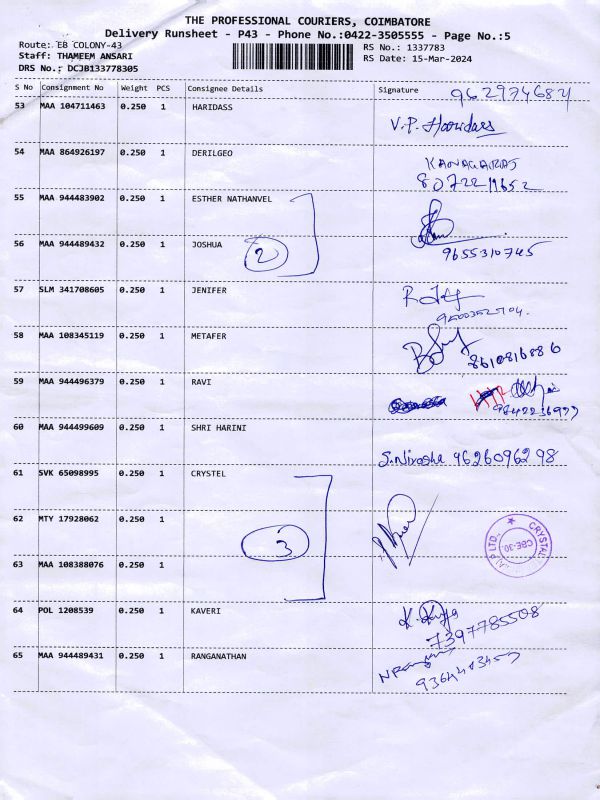 THE PROFESSIONAL COURIERS, COIMBATORE
Delivery Runsheet - P43 - Phone No.:0422-3505555 - Page No.:5
Route: EB COLONY-43
RS No.: 1337783
Staff: THAMEEM ANSARI
RS Date: 15-Mar-2024
DRS No.: DCJB133778305
S No Consignment No Weight PCS Consignee Details Signature
962974684
53 MAA 104711463 0.250 1 HARIDASS
V.P. Haridass
54 MAA 864926197 0.250 1 DERILGEO
KANAGARAJ
8072219652
55 MAA 944483902 0.250 1 ESTHER NATHANVEL
56 MAA 944489432 0.250 1 JOSHUA
2
9655310745
57 SLM 341708605 0.250 1 JENIFER
58 MAA 108345119 0.250 1 METAFER
8610816886
59 MAA 944496379 0.250 1 RAVI
60 MAA 944499609 0.250 1 SHRI HARINI
S.Nivosha 9626096298
61 SVK 65098995 0.250 1 CRYSTEL
62 MTY 17928062 0.250 1
3
CRYSTAL
P LTD.,
CBE-30
63 MAA 108388076 0.250 1
64 POL 1208539 0.250 1 KAVERI
7397785508
65 MAA 944489431 0.250 1 RANGANATHAN